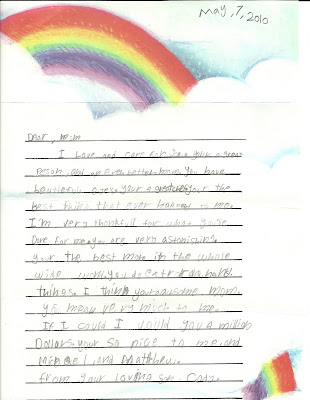 May, 7, 2010
Dear, mom
I Love and care for you your a great
Person, and an even better mom, you have
beutleful eyes your a your the
best thing that ever happend to me.
I'm very thankfull for what you've
Done for me you are very astonishing
your the best mom in the whole
wide world, you do extr hard
things. I think your ausume mom.
you mean very much to me.
If I could I would you a million
Dollars your so nice to me, and
Micheel, and Matthew.
from your loving son Cody.